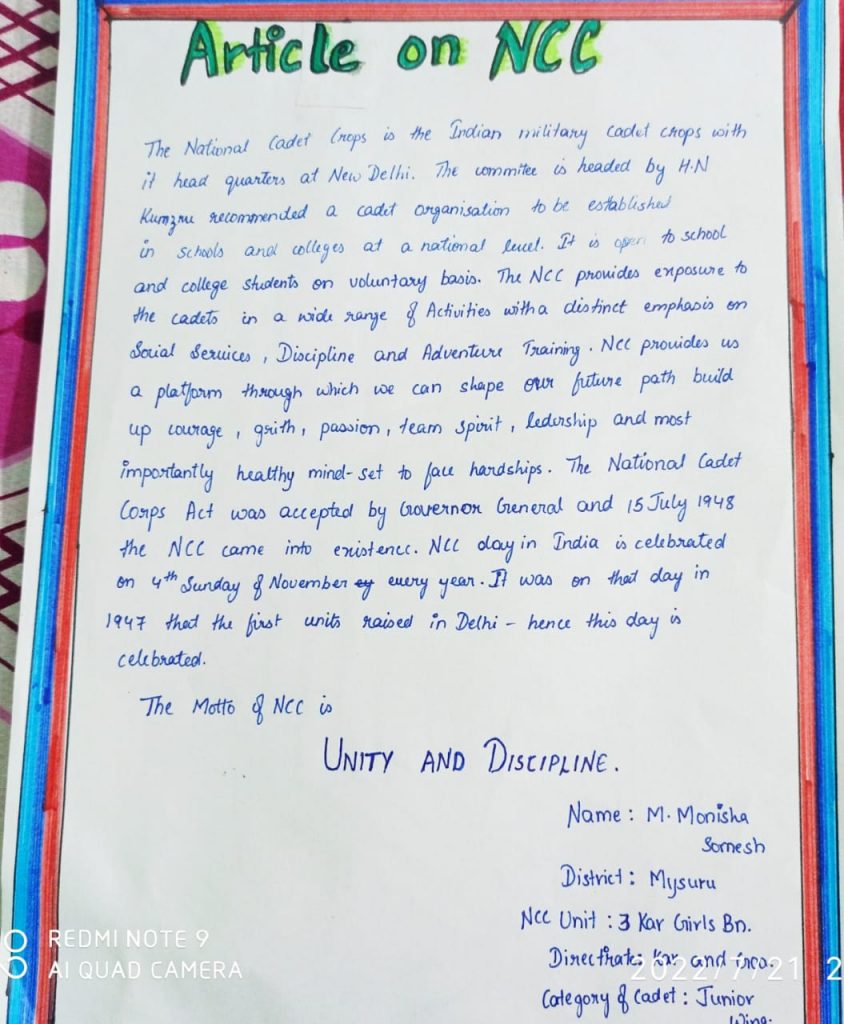 Article on NCC
The National Cadet Crops is the Indian military cadet crops with
it head quarters at New Delhi. The commitee is headed by H.N
Kumzru recommended a cadet organisation to be established
in schools and colleges at a national level. It is open to school
and college students on voluntary basis. The NCC provides exposure to
the cadets in a wide range of Activities with a distinct emphasis on
Social Services, Discipline and Adventure Training. NCC provides us
a platform through which we can shape our future path build
up courage, grith, passion, team spirit, ledership and most
importantly healthy mind-set to face hardships. The National Cadet
Corps Act was accepted by Governor General and 15 July 1948
the NCC came into existence. NCC day in India is celebrated
on 4th Sunday of November every year. It was on that day in
1947 that the first units raised in Delhi - hence this day is
celebrated.
The Motto of NCC is
UNITY AND DISCIPLINE.
Name: M. Monisha
Somesh
District: Mysuru
NCC Unit: 3 Kar Girls Bn.
Kar and
Category of Cadet: Junior
Wing.
REDMI NOTE 9
AI QUAD CAMERA
2022/7/21 2